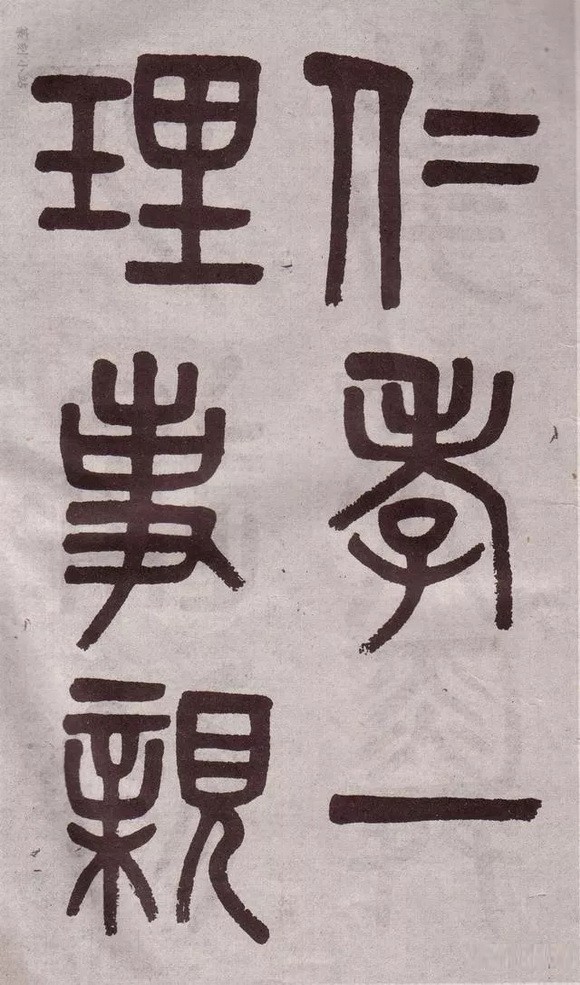 仁孝一
理事親